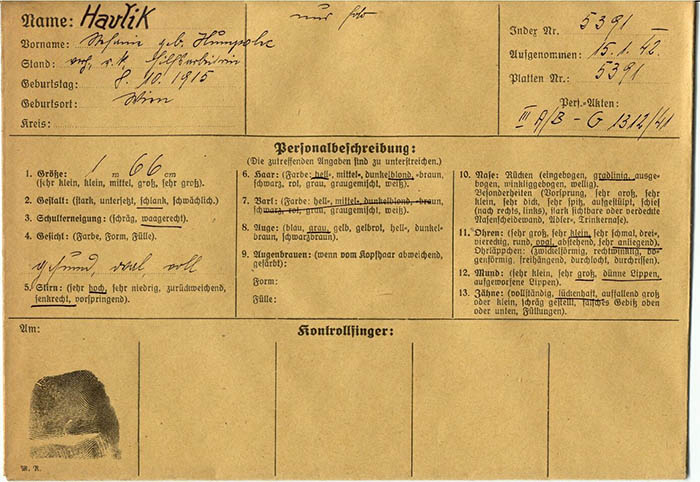 Name: Havlik
nur Foto
Vorname: Stefanie geb. Humpolec
Stand: verh. r. k. Hilfsarbeiterin
Geburtstag: 8. 10. 1915
Geburtsort: Wien
Kreis:
Index Nr. 5391
Aufgenommen: 15. 1. 42.
Platten Nr.: 5391
Pers.-Akten:
III A/B - G 1312/41
Personalbeschreibung:
(Die zutreffenden Angaben sind zu unterstreichen.)
1. Größe: 1 m 66 cm
(sehr klein, klein, mittel, groß, sehr groß).
2. Gestalt: (stark, untersetzt, schlank, schwächlich).
3. Schulterneigung: (schräg, waagerecht).
4. Gesicht: (Farbe, Form, Fülle).
gesund, oval, voll
5. Stirn: (sehr hoch, sehr niedrig, zurückweichend,
senkrecht, vorspringend).
6. Haar: (Farbe: hell-, mittel-, dunkelblond, -braun,
schwarz, rot, grau, graugemischt, weiß).
7. Bart: (Farbe: hell-, mittel-, dunkelblond, -braun,
schwarz, rot, grau, graugemischt, weiß).
8. Auge: (blau, grau, gelb, gelbrot, hell-, dunkel-
braun, schwarzbraun).
9. Augenbrauen: (wenn vom Kopfhaar abweichend,
gefärbt):
Form:
Fülle:
10. Nase: Rücken (eingebogen, gradlinig, ausge-
bogen, winkliggebogen, wellig).
Besonderheiten (Vorsprung, sehr groß, sehr
klein, sehr dick, sehr spitz, aufgestülpt, schief
(nach rechts, links), stark sichtbare oder verdeckte
Nasenscheidewand, Adler-, Trinkernase).
11. Ohren: (sehr groß, sehr klein, sehr schmal, drei-,
viereckig, rund, oval, abstehend, sehr anliegend).
Ohrläppchen: (zwickelförmig, rechtwinklig, bo-
genförmig, freihängend, durchlocht, durchrissen).
12. Mund: (sehr klein, sehr groß, dünne Lippen,
aufgeworfene Lippen).
13. Zähne: (vollständig, lückenhaft, auffallend groß
oder klein, schräg gestellt, falsches Gebiß oben
oder unten, Füllungen).
Am:
Kontrollfinger:
M. R.